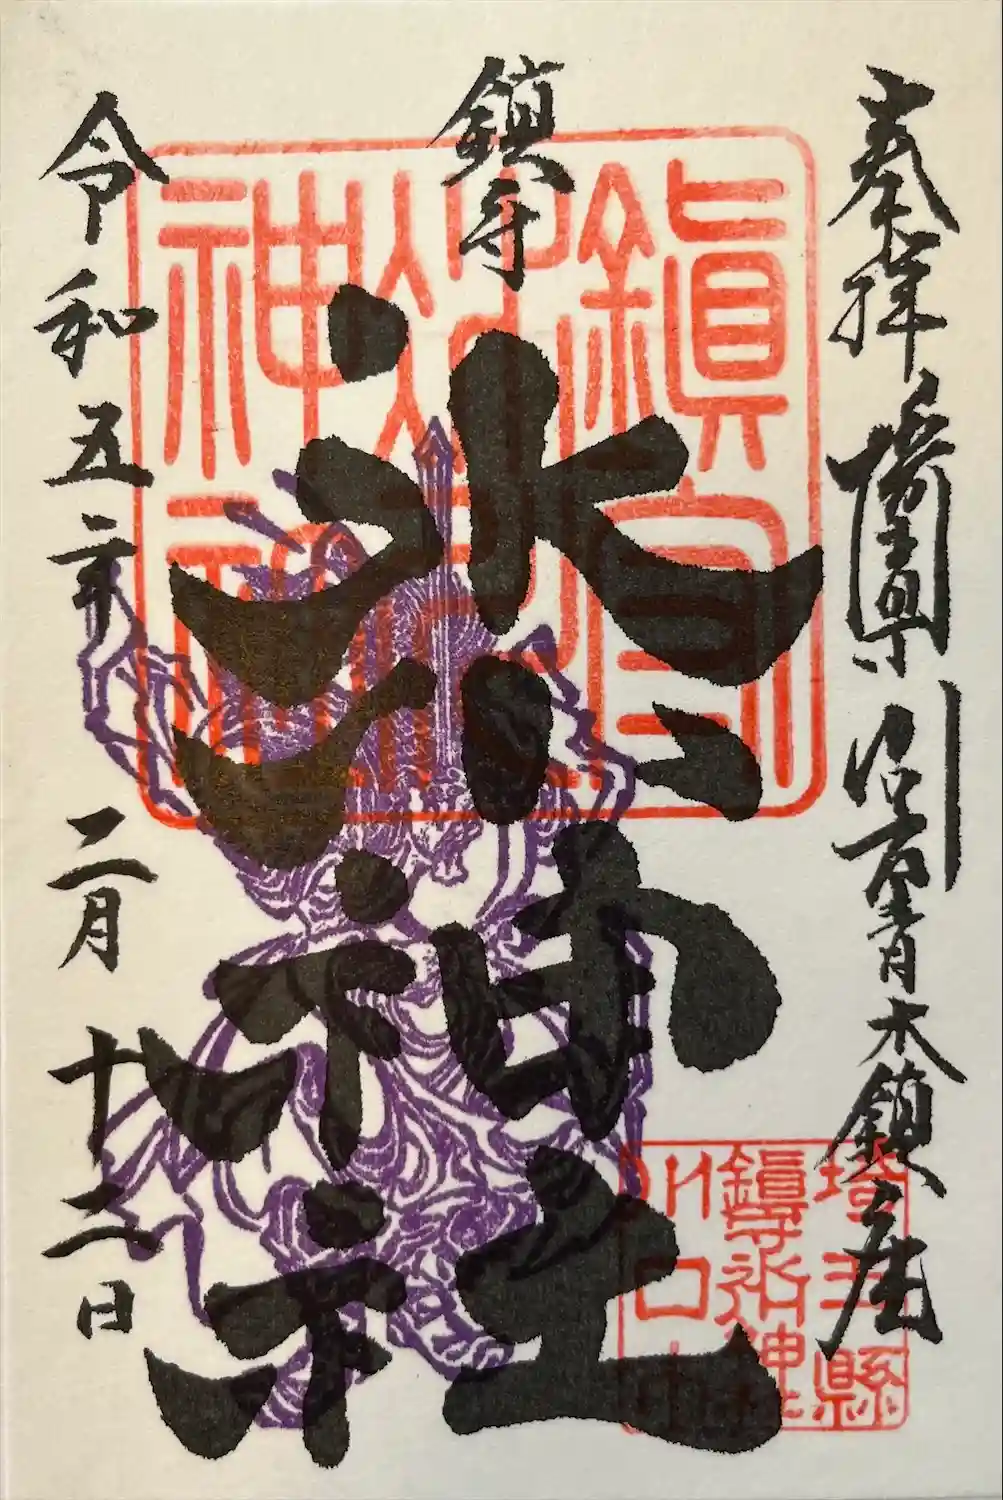 奉拝 埼玉県川口市青木鎮座
鎮守
氷川神社
令和五年
二月
十二日
埼玉縣
鎮守氷川神社
川口市